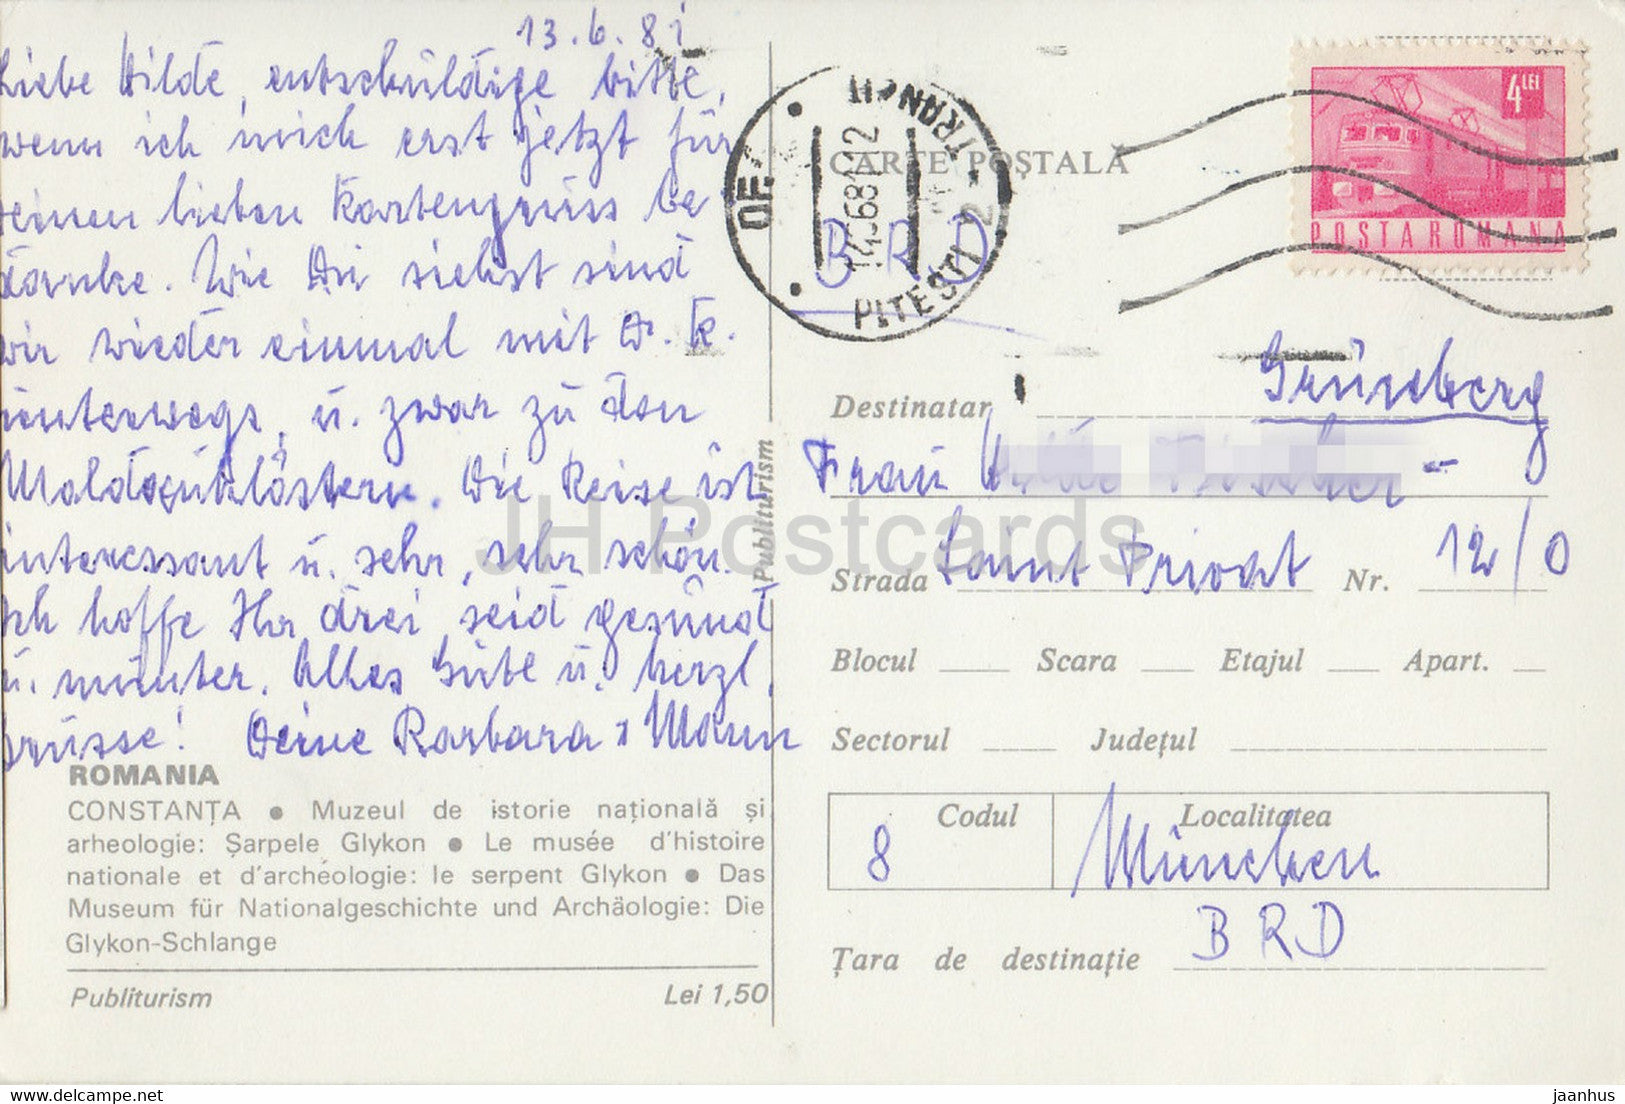 13.6.81
Liebe Hilde, entschuldige bitte,
wenn ich mich erst jetzt für
deinen lieben Kartengruss be
danke. Wie Du siehst sind
wir wieder einmal mit D. K.
unterwegs, u. zwar zu den
Moldauklöstern. Die Reise ist
interessant u. sehr, sehr schön.
Ich hoffe Ihr drei seid gesund
u. munter. Alles Gute u. herzl.
Grüsse! Deine Barbara + Mann
ROMANIA
CONSTANȚA ● Muzeul de istorie națională și
arheologie: Șarpele Glykon ● Le musée d'histoire
nationale et d'archéologie: le serpent Glykon ● Das
Museum für Nationalgeschichte und Archäologie: Die
Glykon-Schlange
Publiturism Lei 1,50
Publiturism
CARTE POȘTALĂ
BRD
OF. TRANZIT
PITEȘTI 2
4 LEI
POSTA ROMANA
Destinatar Grüneberg
Frau
Strada Saint Privat Nr. 12/0
Blocul Scara Etajul Apart.
Sectorul Județul
Codul Localitatea
8 München
Țara de destinație BRD
JH Postcards
delcampe.net
jaanhus